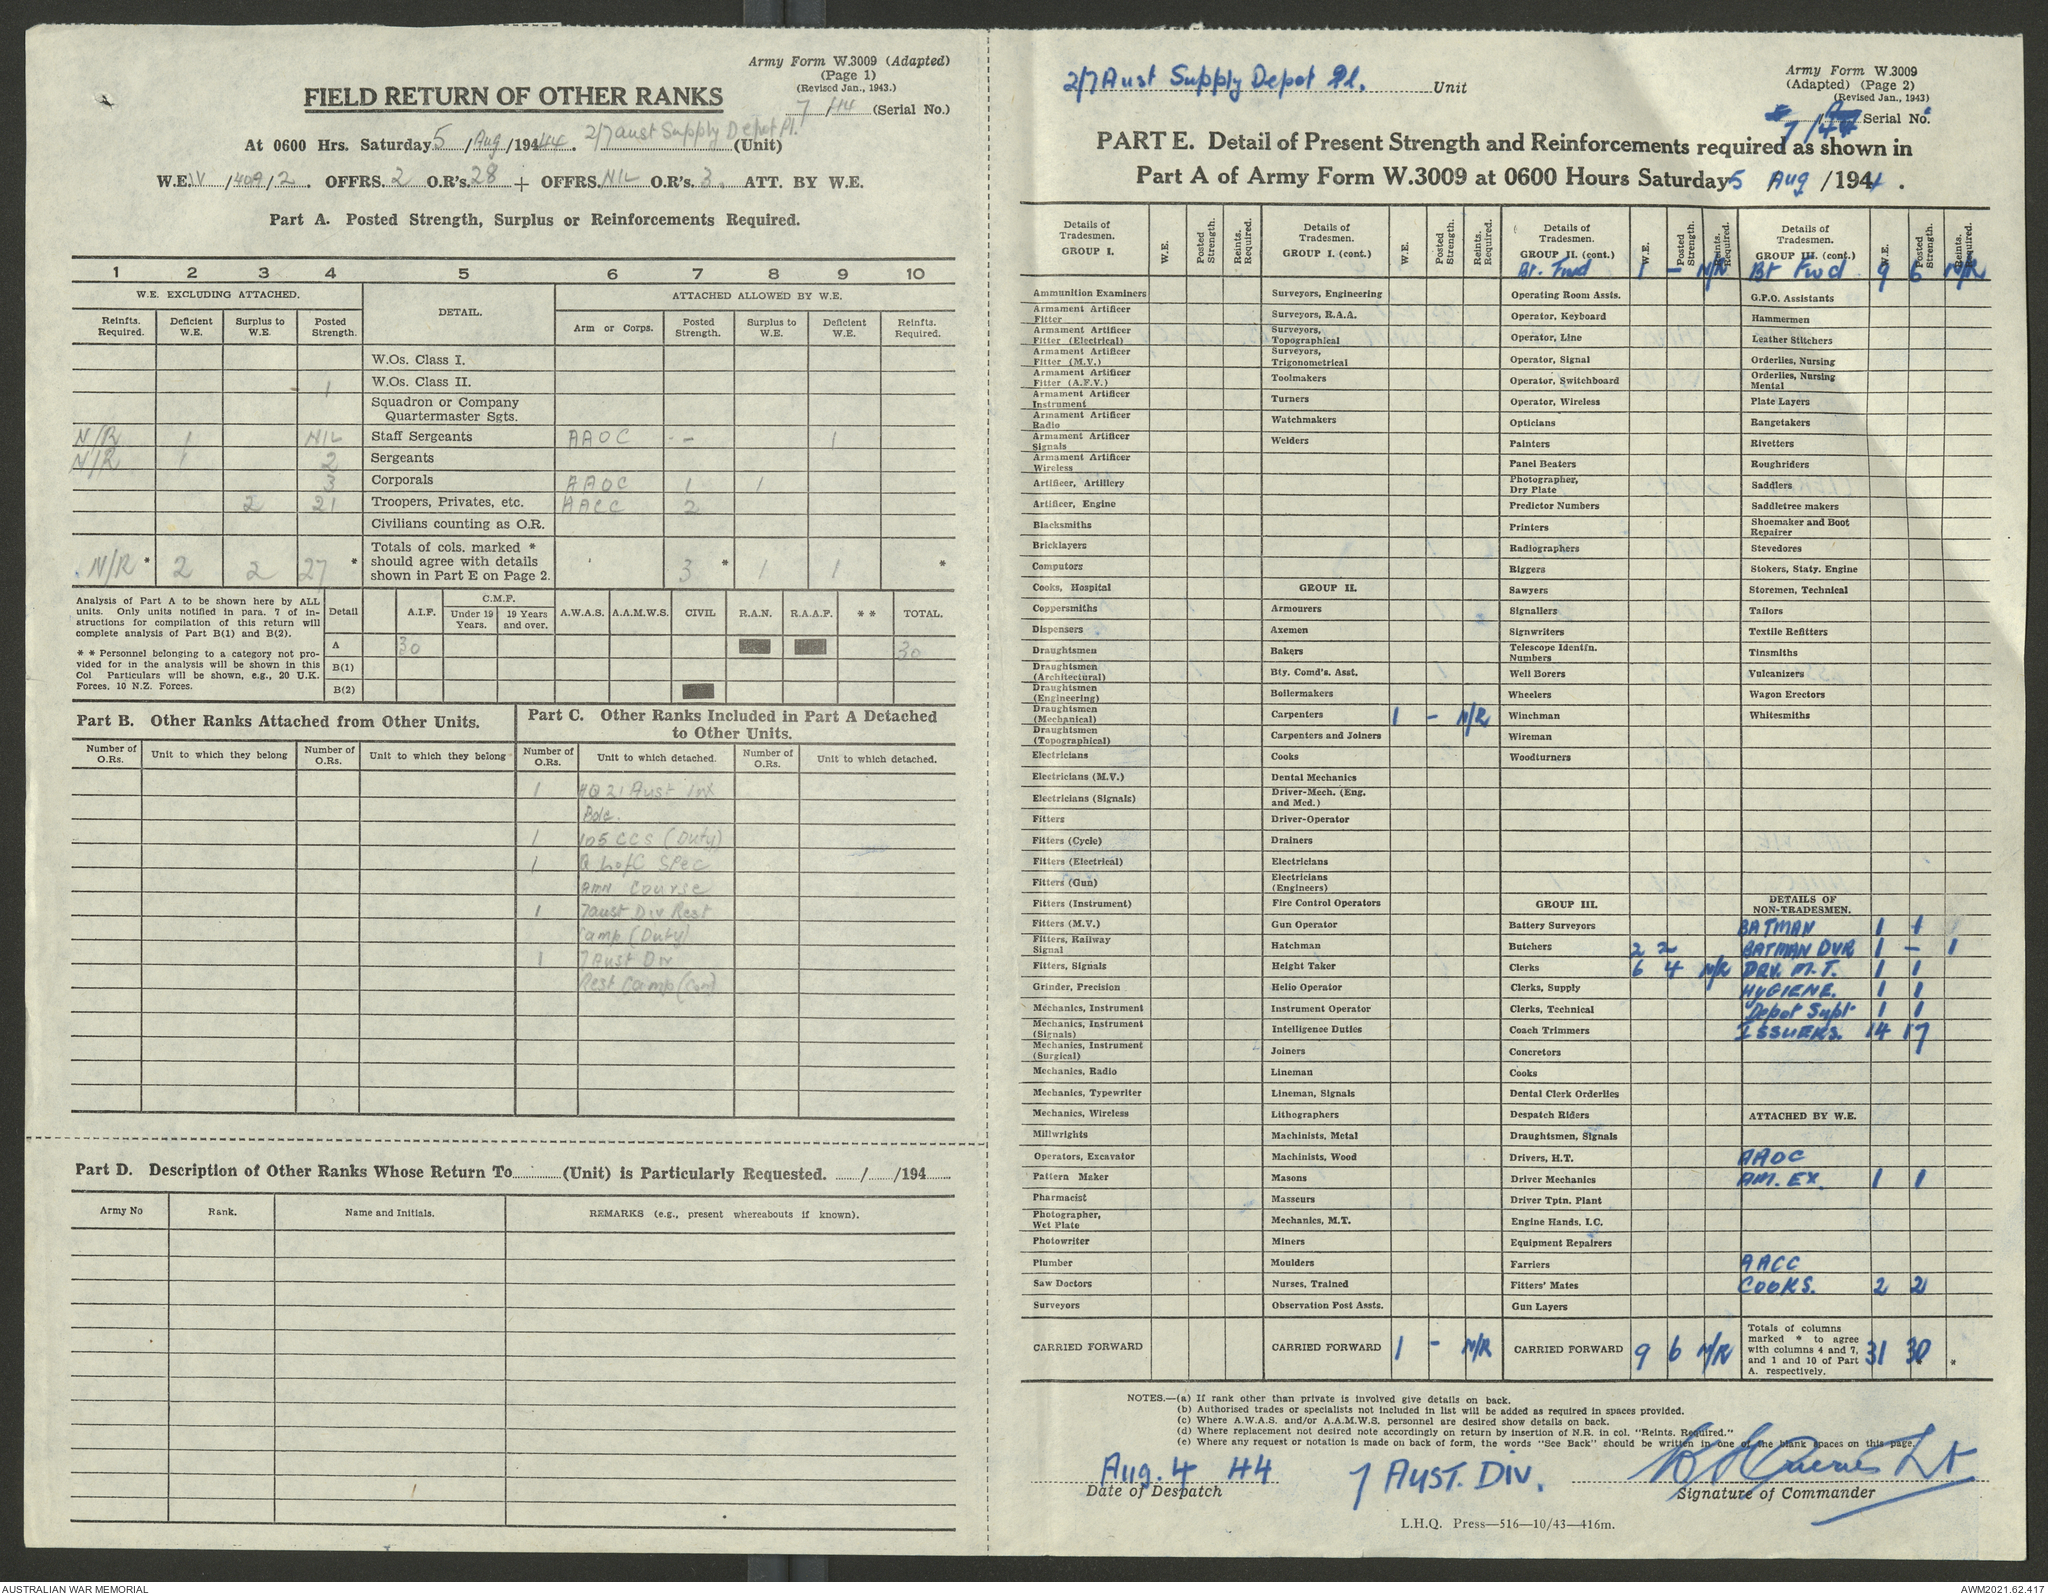 Army Form W.3009 (Adapted)
(Page 1)
(Revised Jan., 1943.)
FIELD RETURN OF OTHER RANKS
7/44 (Serial No.)
At 0600 Hrs. Saturday 5/Aug/194 44. 2/7 Aust Supply Depot Pl. (Unit)
W.E. IV/40A/2. OFFRS. 2 O.R's. 28 + OFFRS. NIL O.R's. 3. ATT. BY W.E.
Part A. Posted Strength, Surplus or Reinforcements Required.
1 2 3 4 5 6 7 8 9 10
W.E. EXCLUDING ATTACHED. DETAIL. ATTACHED ALLOWED BY W.E.
Reinfts. Required. Deficient W.E. Surplus to W.E. Posted Strength. Arm or Corps. Posted Strength. Surplus to W.E. Deficient W.E. Reinfts. Required.
W.Os. Class I.
1 W.Os. Class II.
Squadron or Company Quartermaster Sgts.
N/R 1 NIL Staff Sergeants AAOC - 1
N/R 1 2 Sergeants
3 Corporals AAOC 1 1
2 21 Troopers, Privates, etc. AACC 2
Civilians counting as O.R.
N/R * 2 2 27 * Totals of cols. marked * should agree with details shown in Part E on Page 2. 3 * 1 1 *
Analysis of Part A to be shown here by ALL units. Only units notified in para. 7 of instructions for compilation of this return will complete analysis of Part B(1) and B(2).
* * Personnel belonging to a category not provided for in the analysis will be shown in this Col. Particulars will be shown, e.g., 20 U.K. Forces, 10 N.Z. Forces.
Detail A.I.F. C.M.F. Under 19 Years. 19 Years and over. A.W.A.S. A.A.M.W.S. CIVIL R.A.N. R.A.A.F. * * TOTAL.
A 30 30
B(1)
B(2)
Part B. Other Ranks Attached from Other Units.
Number of O.Rs. Unit to which they belong Number of O.Rs. Unit to which they belong
Part C. Other Ranks Included in Part A Detached to Other Units.
Number of O.Rs. Unit to which detached. Number of O.Rs. Unit to which detached.
1 HQ 21 Aust Inf
Bde.
1 105 CCS (Duty)
1 Q LofC Spec
AMN Course
1 7 Aust Div Rest
Camp (Duty)
1 7 Aust Div
Rest Camp (Con)
Part D. Description of Other Ranks Whose Return To (Unit) is Particularly Requested. / /194
Army No Rank. Name and Initials. REMARKS (e.g., present whereabouts if known).
2/7 Aust Supply Depot Pl. Unit
Army Form W.3009
(Adapted) (Page 2)
(Revised Jan., 1943)
7/44 Serial No.
PART E. Detail of Present Strength and Reinforcements required as shown in
Part A of Army Form W.3009 at 0600 Hours Saturday 5 Aug /1944.
Details of Tradesmen. GROUP I. W.E. Posted Strength. Reints. Required.
Ammunition Examiners
Armament Artificer Fitter
Armament Artificer Fitter (Electrical)
Armament Artificer Fitter (M.V.)
Armament Artificer Fitter (A.F.V.)
Armament Artificer Instrument
Armament Artificer Radio
Armament Artificer Signals
Armament Artificer Wireless
Artificer, Artillery
Artificer, Engine
Blacksmiths
Bricklayers
Computors
Cooks, Hospital
Coppersmiths
Dispensers
Draughtsmen
Draughtsmen (Architectural)
Draughtsmen (Engineering)
Draughtsmen (Mechanical)
Draughtsmen (Topographical)
Electricians
Electricians (M.V.)
Electricians (Signals)
Fitters
Fitters (Cycle)
Fitters (Electrical)
Fitters (Gun)
Fitters (Instrument)
Fitters (M.V.)
Fitters, Railway Signal
Fitters, Signals
Grinder, Precision
Mechanics, Instrument
Mechanics, Instrument (Signals)
Mechanics, Instrument (Surgical)
Mechanics, Radio
Mechanics, Typewriter
Mechanics, Wireless
Millwrights
Operators, Excavator
Pattern Maker
Pharmacist
Photographer, Wet Plate
Photowriter
Plumber
Saw Doctors
Surveyors
CARRIED FORWARD
Details of Tradesmen. GROUP I. (cont.) W.E. Posted Strength. Reints. Required.
Surveyors, Engineering
Surveyors, R.A.A.
Surveyors, Topographical
Surveyors, Trigonometrical
Toolmakers
Turners
Watchmakers
Welders
GROUP II.
Armourers
Axemen
Bakers
Bty. Comd's. Asst.
Boilermakers
Carpenters 1 - N/R
Carpenters and Joiners
Cooks
Dental Mechanics
Driver-Mech. (Eng. and Med.)
Driver-Operator
Drainers
Electricians
Electricians (Engineers)
Fire Control Operators
Gun Operator
Hatchman
Height Taker
Helio Operator
Instrument Operator
Intelligence Duties
Joiners
Lineman
Lineman, Signals
Lithographers
Machinists, Metal
Machinists, Wood
Masons
Masseurs
Mechanics, M.T.
Miners
Moulders
Nurses, Trained
Observation Post Assts.
CARRIED FORWARD 1 - N/R
Details of Tradesmen. GROUP II. (cont.) W.E. Posted Strength. Reints. Required.
Bt. Fwd 1 - N/R
Operating Room Assts.
Operator, Keyboard
Operator, Line
Operator, Signal
Operator, Switchboard
Operator, Wireless
Opticians
Painters
Panel Beaters
Photographer, Dry Plate
Predictor Numbers
Printers
Radiographers
Riggers
Sawyers
Signallers
Signwriters
Telescope Identfn. Numbers
Well Borers
Wheelers
Winchman
Wireman
Woodturners
GROUP III.
Battery Surveyors
Butchers 2 2
Clerks 6 4 N/R
Clerks, Supply
Clerks, Technical
Coach Trimmers
Concretors
Cooks
Dental Clerk Orderlies
Despatch Riders
Draughtsmen, Signals
Drivers, H.T.
Driver Mechanics
Driver Tptn. Plant
Engine Hands, I.C.
Equipment Repairers
Farriers
Fitters' Mates
Gun Layers
CARRIED FORWARD 9 6 N/R
Details of Tradesmen. GROUP III. (cont.) W.E. Posted Strength. Reints. Required.
Bt Fwd 9 6 N/R
G.P.O. Assistants
Hammermen
Leather Stitchers
Orderlies, Nursing
Orderlies, Nursing Mental
Plate Layers
Rangetakers
Rivetters
Roughriders
Saddlers
Saddletree makers
Shoemaker and Boot Repairer
Stevedores
Stokers, Staty. Engine
Storemen, Technical
Tailors
Textile Refitters
Tinsmiths
Vulcanizers
Wagon Erectors
Whitesmiths
DETAILS OF NON-TRADESMEN.
BATMAN 1 1
BATMAN DVR 1 - 1
DRV. M.T. 1 1
HYGIENE. 1 1
Depot Supt 1 1
ISSUERS. 14 17
ATTACHED BY W.E.
AAOC
AM. EX. 1 1
AACC
COOKS. 2 2
Totals of columns marked * to agree with columns 4 and 7, and 1 and 10 of Part A. respectively. 31 30 * *
NOTES.—(a) If rank other than private is involved give details on back.
(b) Authorised trades or specialists not included in list will be added as required in spaces provided.
(c) Where A.W.A.S. and/or A.A.M.W.S. personnel are desired show details on back.
(d) Where replacement not desired note accordingly on return by insertion of N.R. in col. "Reints. Required."
(e) Where any request or notation is made on back of form, the words "See Back" should be written in one of the blank spaces on this page.
Aug. 4 44 7 AUST. DIV. Lt
Date of Despatch Signature of Commander
L.H.Q. Press—516—10/43—416m.
AUSTRALIAN WAR MEMORIAL AWM2021.62.417